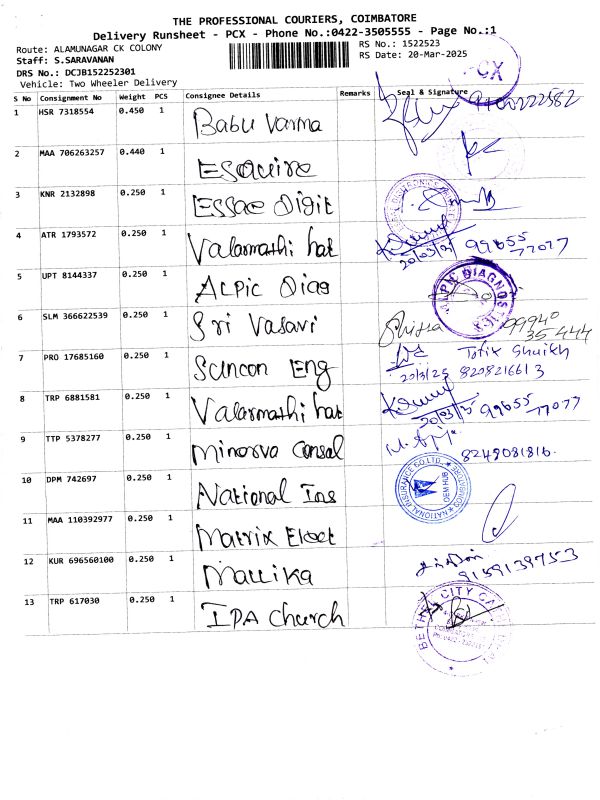 THE PROFESSIONAL COURIERS, COIMBATORE
Delivery Runsheet - PCX - Phone No.:0422-3505555 - Page No.:1
Route: ALAMUNAGAR CK COLONY
RS No.: 1522523
Staff: S.SARAVANAN
RS Date: 20-Mar-2025
DRS No.: DCJB152252301
Vehicle: Two Wheeler Delivery
PCX
S No Consignment No Weight PCS Consignee Details Remarks Seal & Signature
1 HSR 7318554 0.450 1 Babu Varma
2 MAA 706263257 0.440 1 Esquire
3 KNR 2132898 0.250 1 Essae Digit
4 ATR 1793572 0.250 1 Valarmathi hat 20/03/25 99655
77077
5 UPT 8144337 0.250 1 ALPic Diag
ALPIC DIAGNOSTICS
6 SLM 366622539 0.250 1 Sri Vasavi 99940
35444
7 PRO 17685160 0.250 1 Suncon Eng Tofix Shaikh
20/3/25 8208216613
8 TRP 6881581 0.250 1 Valarmathi hat 20/03/25 99655
77077
9 TTP 5378277 0.250 1 Minerva Consal
8249081816.
10 DPM 742697 0.250 1 National Ins
NATIONAL INSURANCE CO LTD.
OEM HUB
11 MAA 110392977 0.250 1 Matrix Elect
12 KUR 696560100 0.250 1 Mallika
9159139753
13 TRP 617030 0.250 1 IPA Church
BETHEL CITY